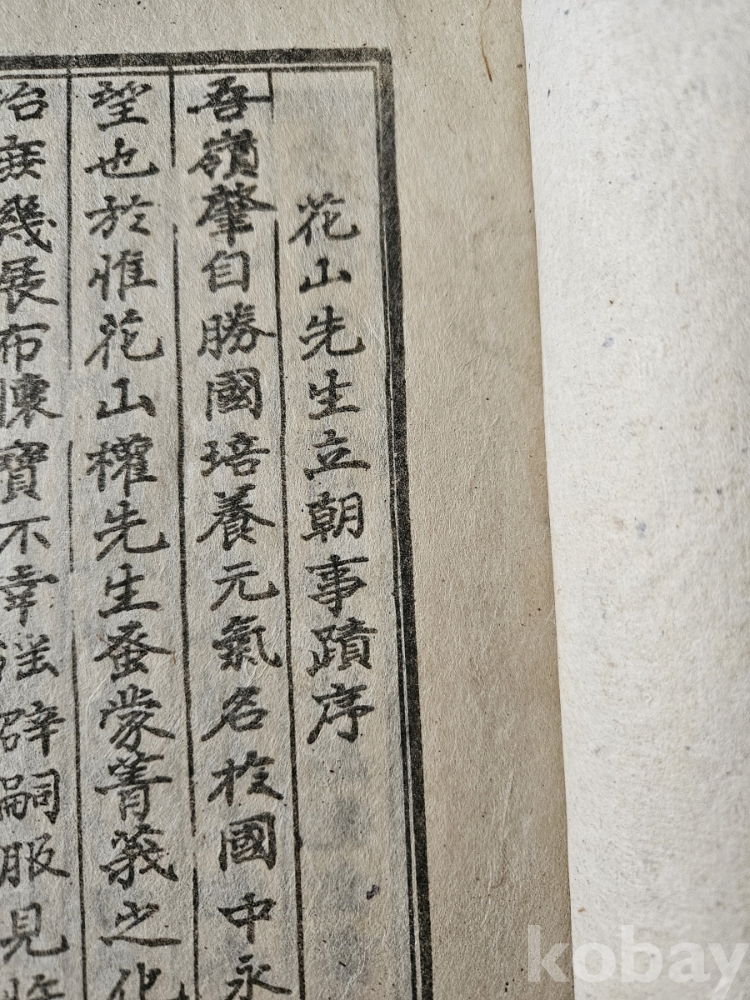 花山先生立朝事蹟序
吾嶺肇自勝國培養元氣名於國中永
望也於惟花山權先生蚤蒙菁莪之化
治無幾展布懷寶不幸淫辟嗣服見
kobay